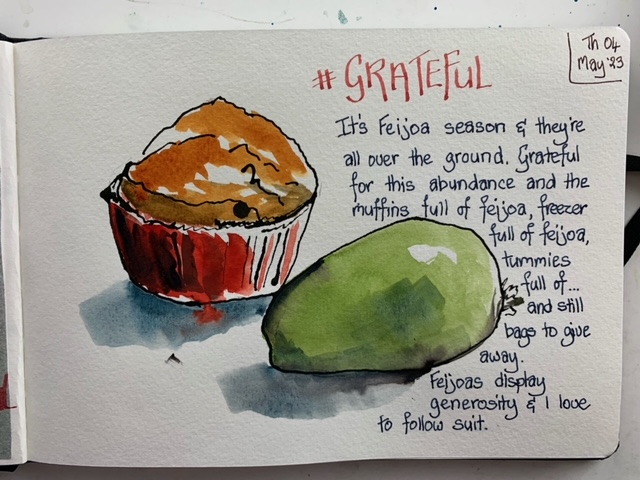 Th 04
May '23
#GRATEFUL
It's Feijoa season & they're
all over the ground. Grateful
for this abundance and the
muffins full of feijoa, freezer
full of feijoa,
tummies
full of...
and still
bags to give
away.
Feijoas display
generosity & I love
to follow suit.